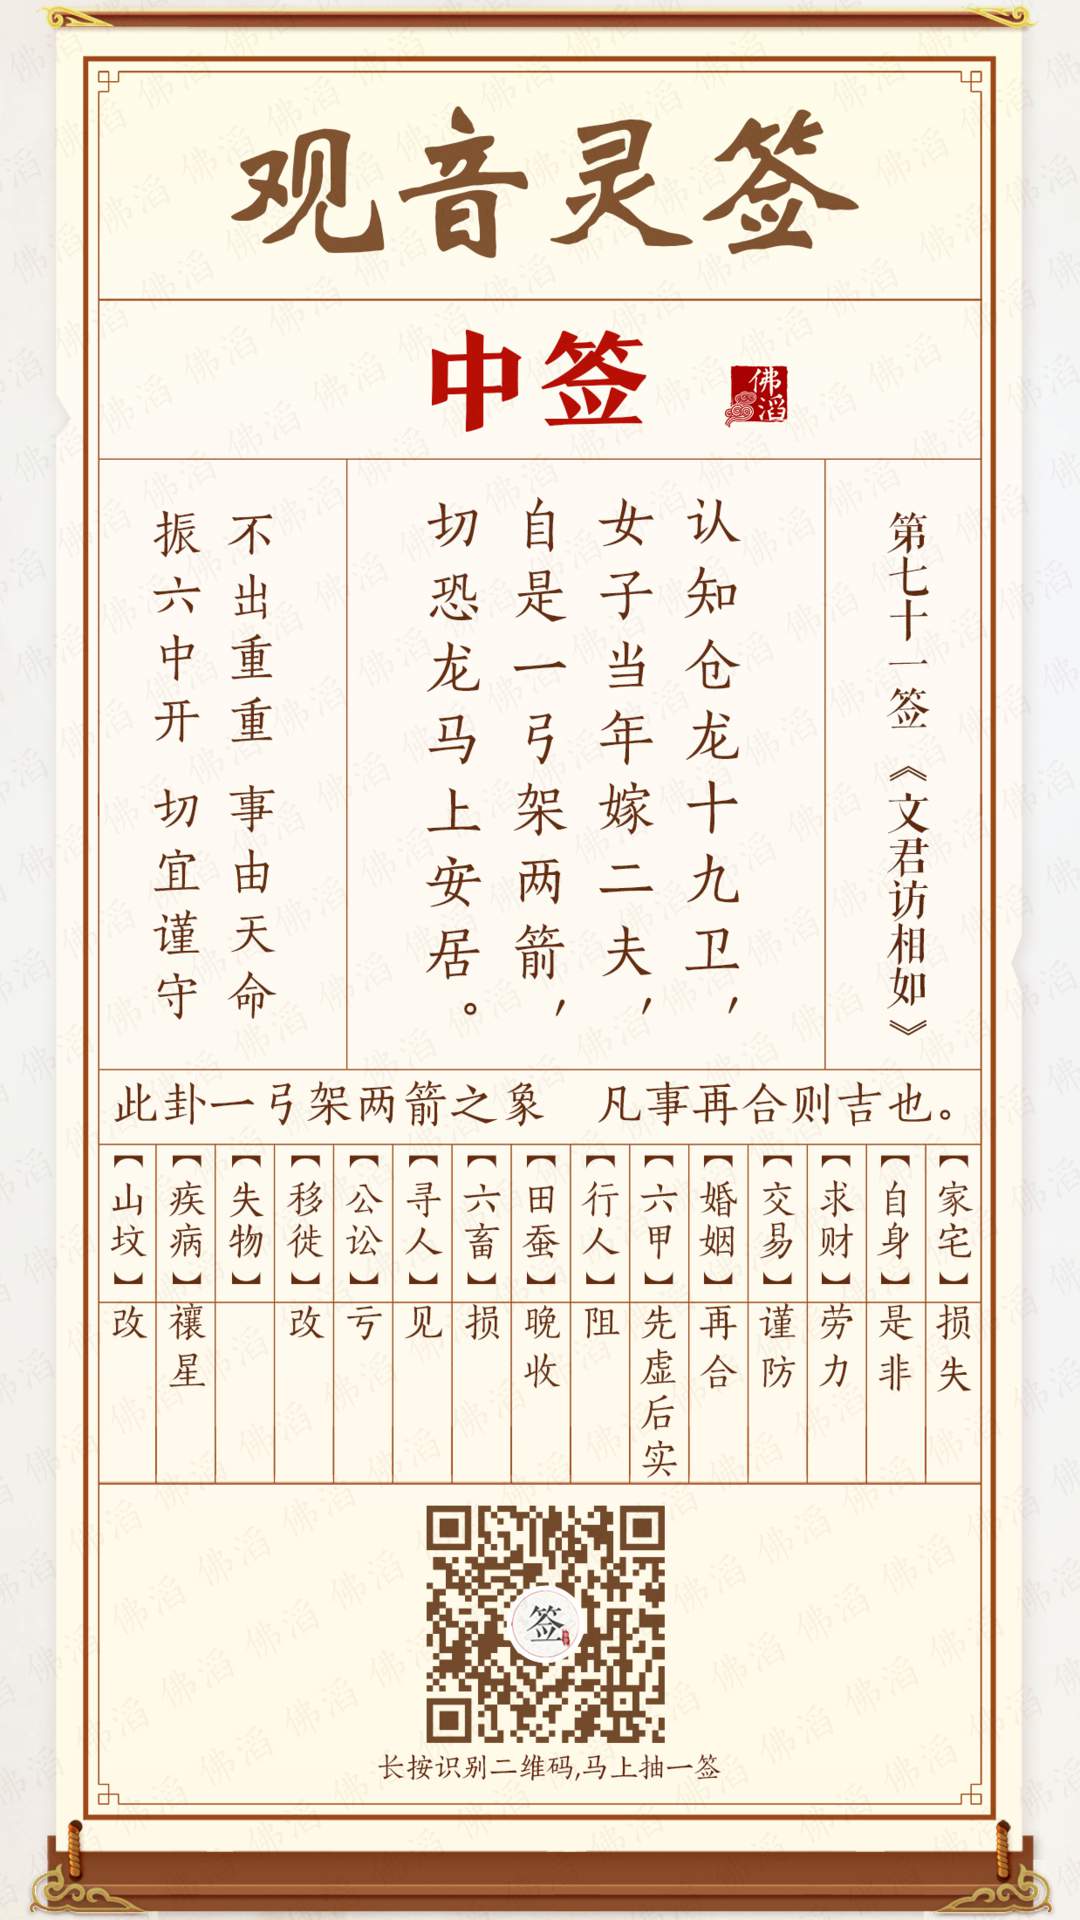 观音灵签
中签
佛滔
第七十一签《文君访相如》
认知仓龙十九卫，
女子当年嫁二夫，
自是一弓架两箭，
切恐龙马上安居。
不出重重 事由天命
振六中开 切宜谨守
此卦一弓架两箭之象 凡事再合则吉也。
【家宅】损失
【自身】是非
【求财】劳力
【交易】谨防
【婚姻】再合
【六甲】先虚后实
【行人】阻
【田蚕】晚收
【六畜】损
【寻人】见
【公讼】亏
【移徙】改
【失物】
【疾病】禳星
【山坟】改
签
长按识别二维码,马上抽一签